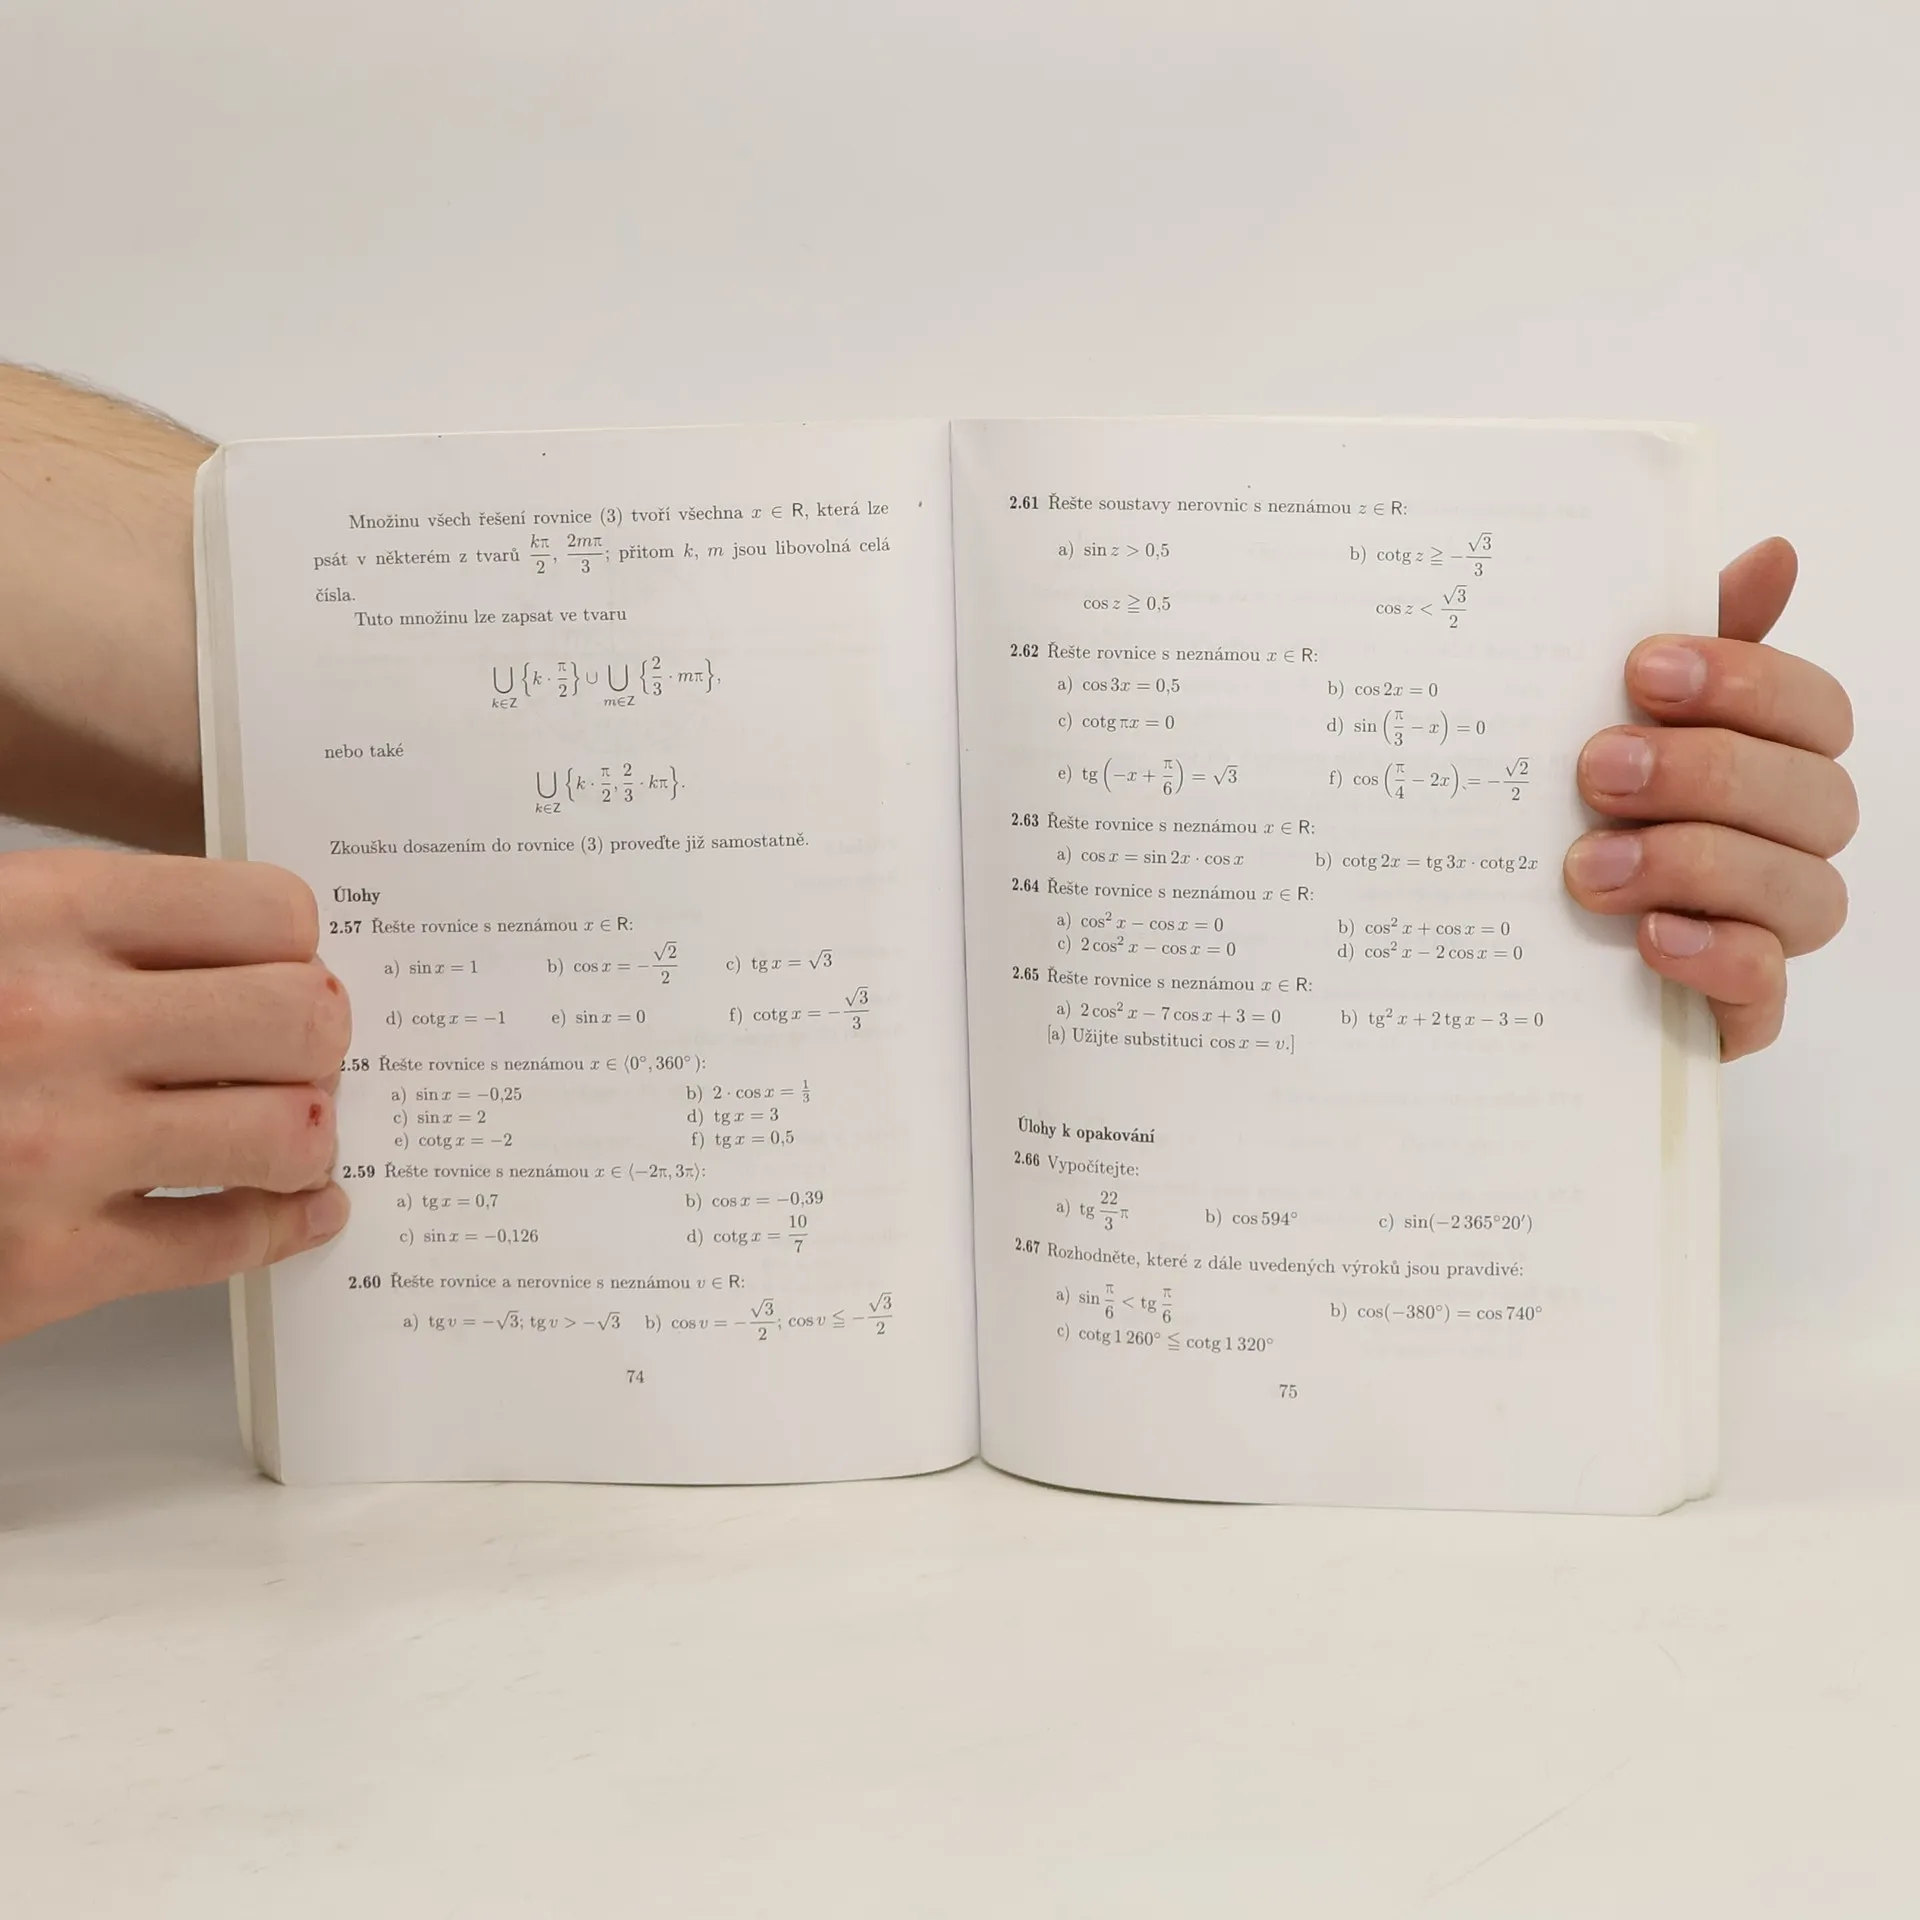 Množinu všech řešení rovnice (3) tvoří všechna x ∈ R, která lze
psát v některém z tvarů kπ/2, 2mπ/3; přitom k, m jsou libovolná celá
čísla.
Tuto množinu lze zapsat ve tvaru
⋃_{k∈Z} {k · π/2} ∪ ⋃_{m∈Z} {2/3 · mπ},
nebo také
⋃_{k∈Z} {k · π/2, 2/3 · kπ}.
Zkoušku dosazením do rovnice (3) proveďte již samostatně.
Úlohy
2.57 Řešte rovnice s neznámou x ∈ R:
a) sin x = 1 b) cos x = −√2/2 c) tg x = √3
d) cotg x = −1 e) sin x = 0 f) cotg x = −√3/3
2.58 Řešte rovnice s neznámou x ∈ ⟨0°, 360°):
a) sin x = −0,25 b) 2 · cos x = 1/3
c) sin x = 2 d) tg x = 3
e) cotg x = −2 f) tg x = 0,5
2.59 Řešte rovnice s neznámou x ∈ ⟨−2π, 3π⟩:
a) tg x = 0,7 b) cos x = −0,39
c) sin x = −0,126 d) cotg x = 10/7
2.60 Řešte rovnice a nerovnice s neznámou v ∈ R:
a) tg v = −√3; tg v > −√3 b) cos v = −√3/2; cos v ≦ −√3/2
74
2.61 Řešte soustavy nerovnic s neznámou z ∈ R:
a) sin z > 0,5 b) cotg z ≧ −√3/3
cos z ≧ 0,5 cos z < √3/2
2.62 Řešte rovnice s neznámou x ∈ R:
a) cos 3x = 0,5 b) cos 2x = 0
c) cotg πx = 0 d) sin (π/3 − x) = 0
e) tg (−x + π/6) = √3 f) cos (π/4 − 2x) = −√2/2
2.63 Řešte rovnice s neznámou x ∈ R:
a) cos x = sin 2x · cos x b) cotg 2x = tg 3x · cotg 2x
2.64 Řešte rovnice s neznámou x ∈ R:
a) cos² x − cos x = 0 b) cos² x + cos x = 0
c) 2 cos² x − cos x = 0 d) cos² x − 2 cos x = 0
2.65 Řešte rovnice s neznámou x ∈ R:
a) 2 cos² x − 7 cos x + 3 = 0 b) tg² x + 2 tg x − 3 = 0
[a) Užijte substituci cos x = v.]
Úlohy k opakování
2.66 Vypočítejte:
a) tg 22/3 π b) cos 594° c) sin(−2 365°20′)
2.67 Rozhodněte, které z dále uvedených výroků jsou pravdivé:
a) sin π/6 < tg π/6 b) cos(−380°) = cos 740°
c) cotg 1 260° ≦ cotg 1 320°
75